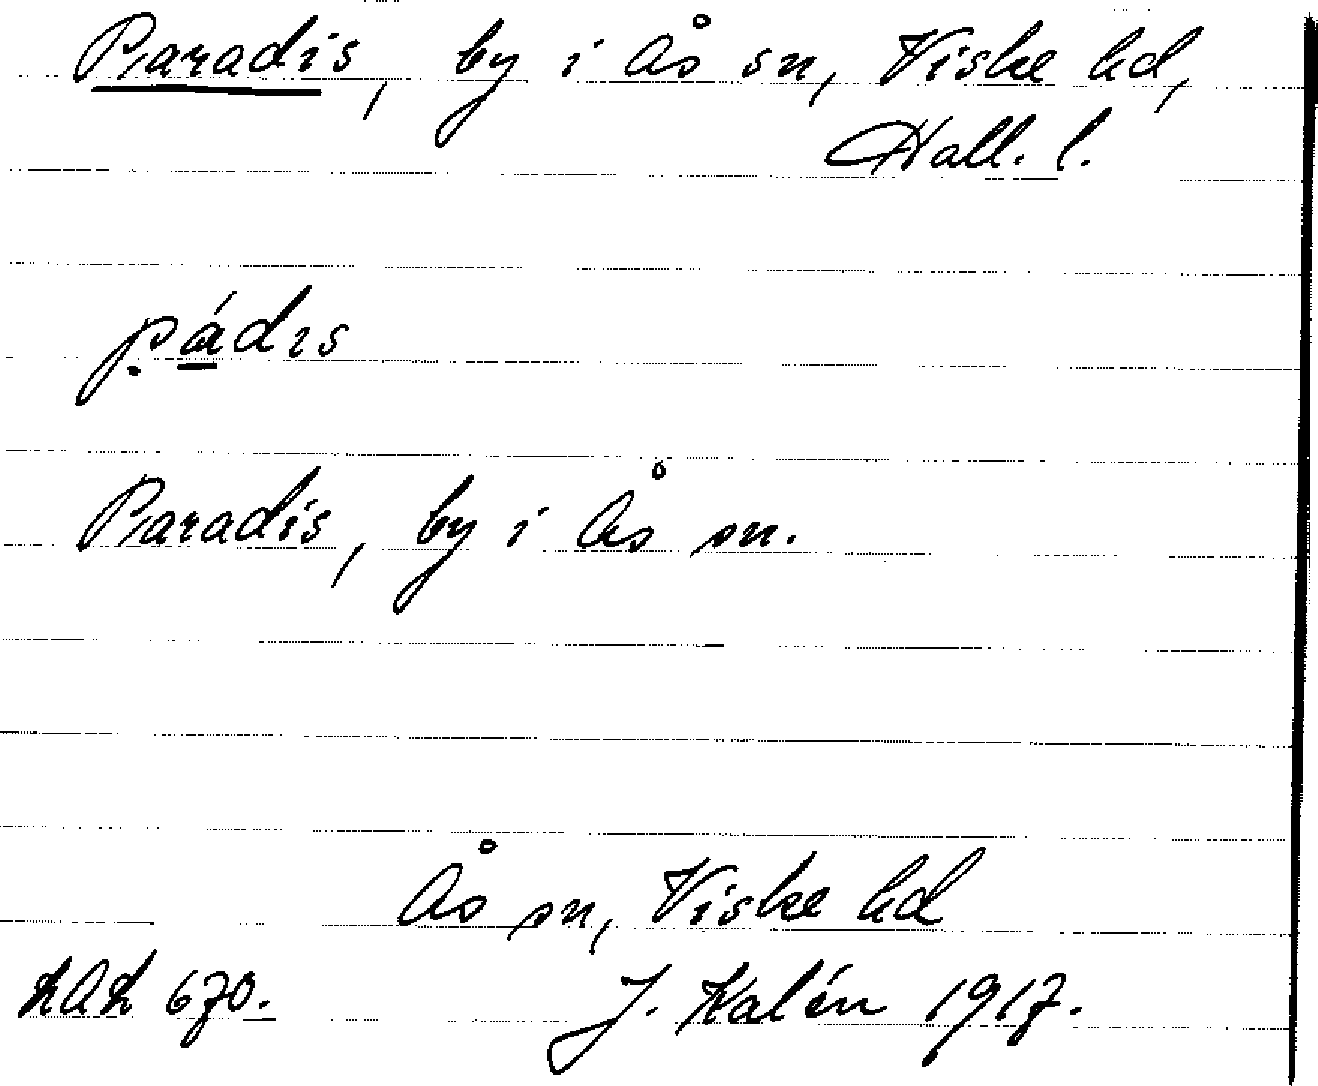 Paradis, by i Ås sn, Viske hd,
Hall. l.
pádıs
Paradis, by i Ås sn.
Ås sn, Viske hd
J. Kalén 1917.